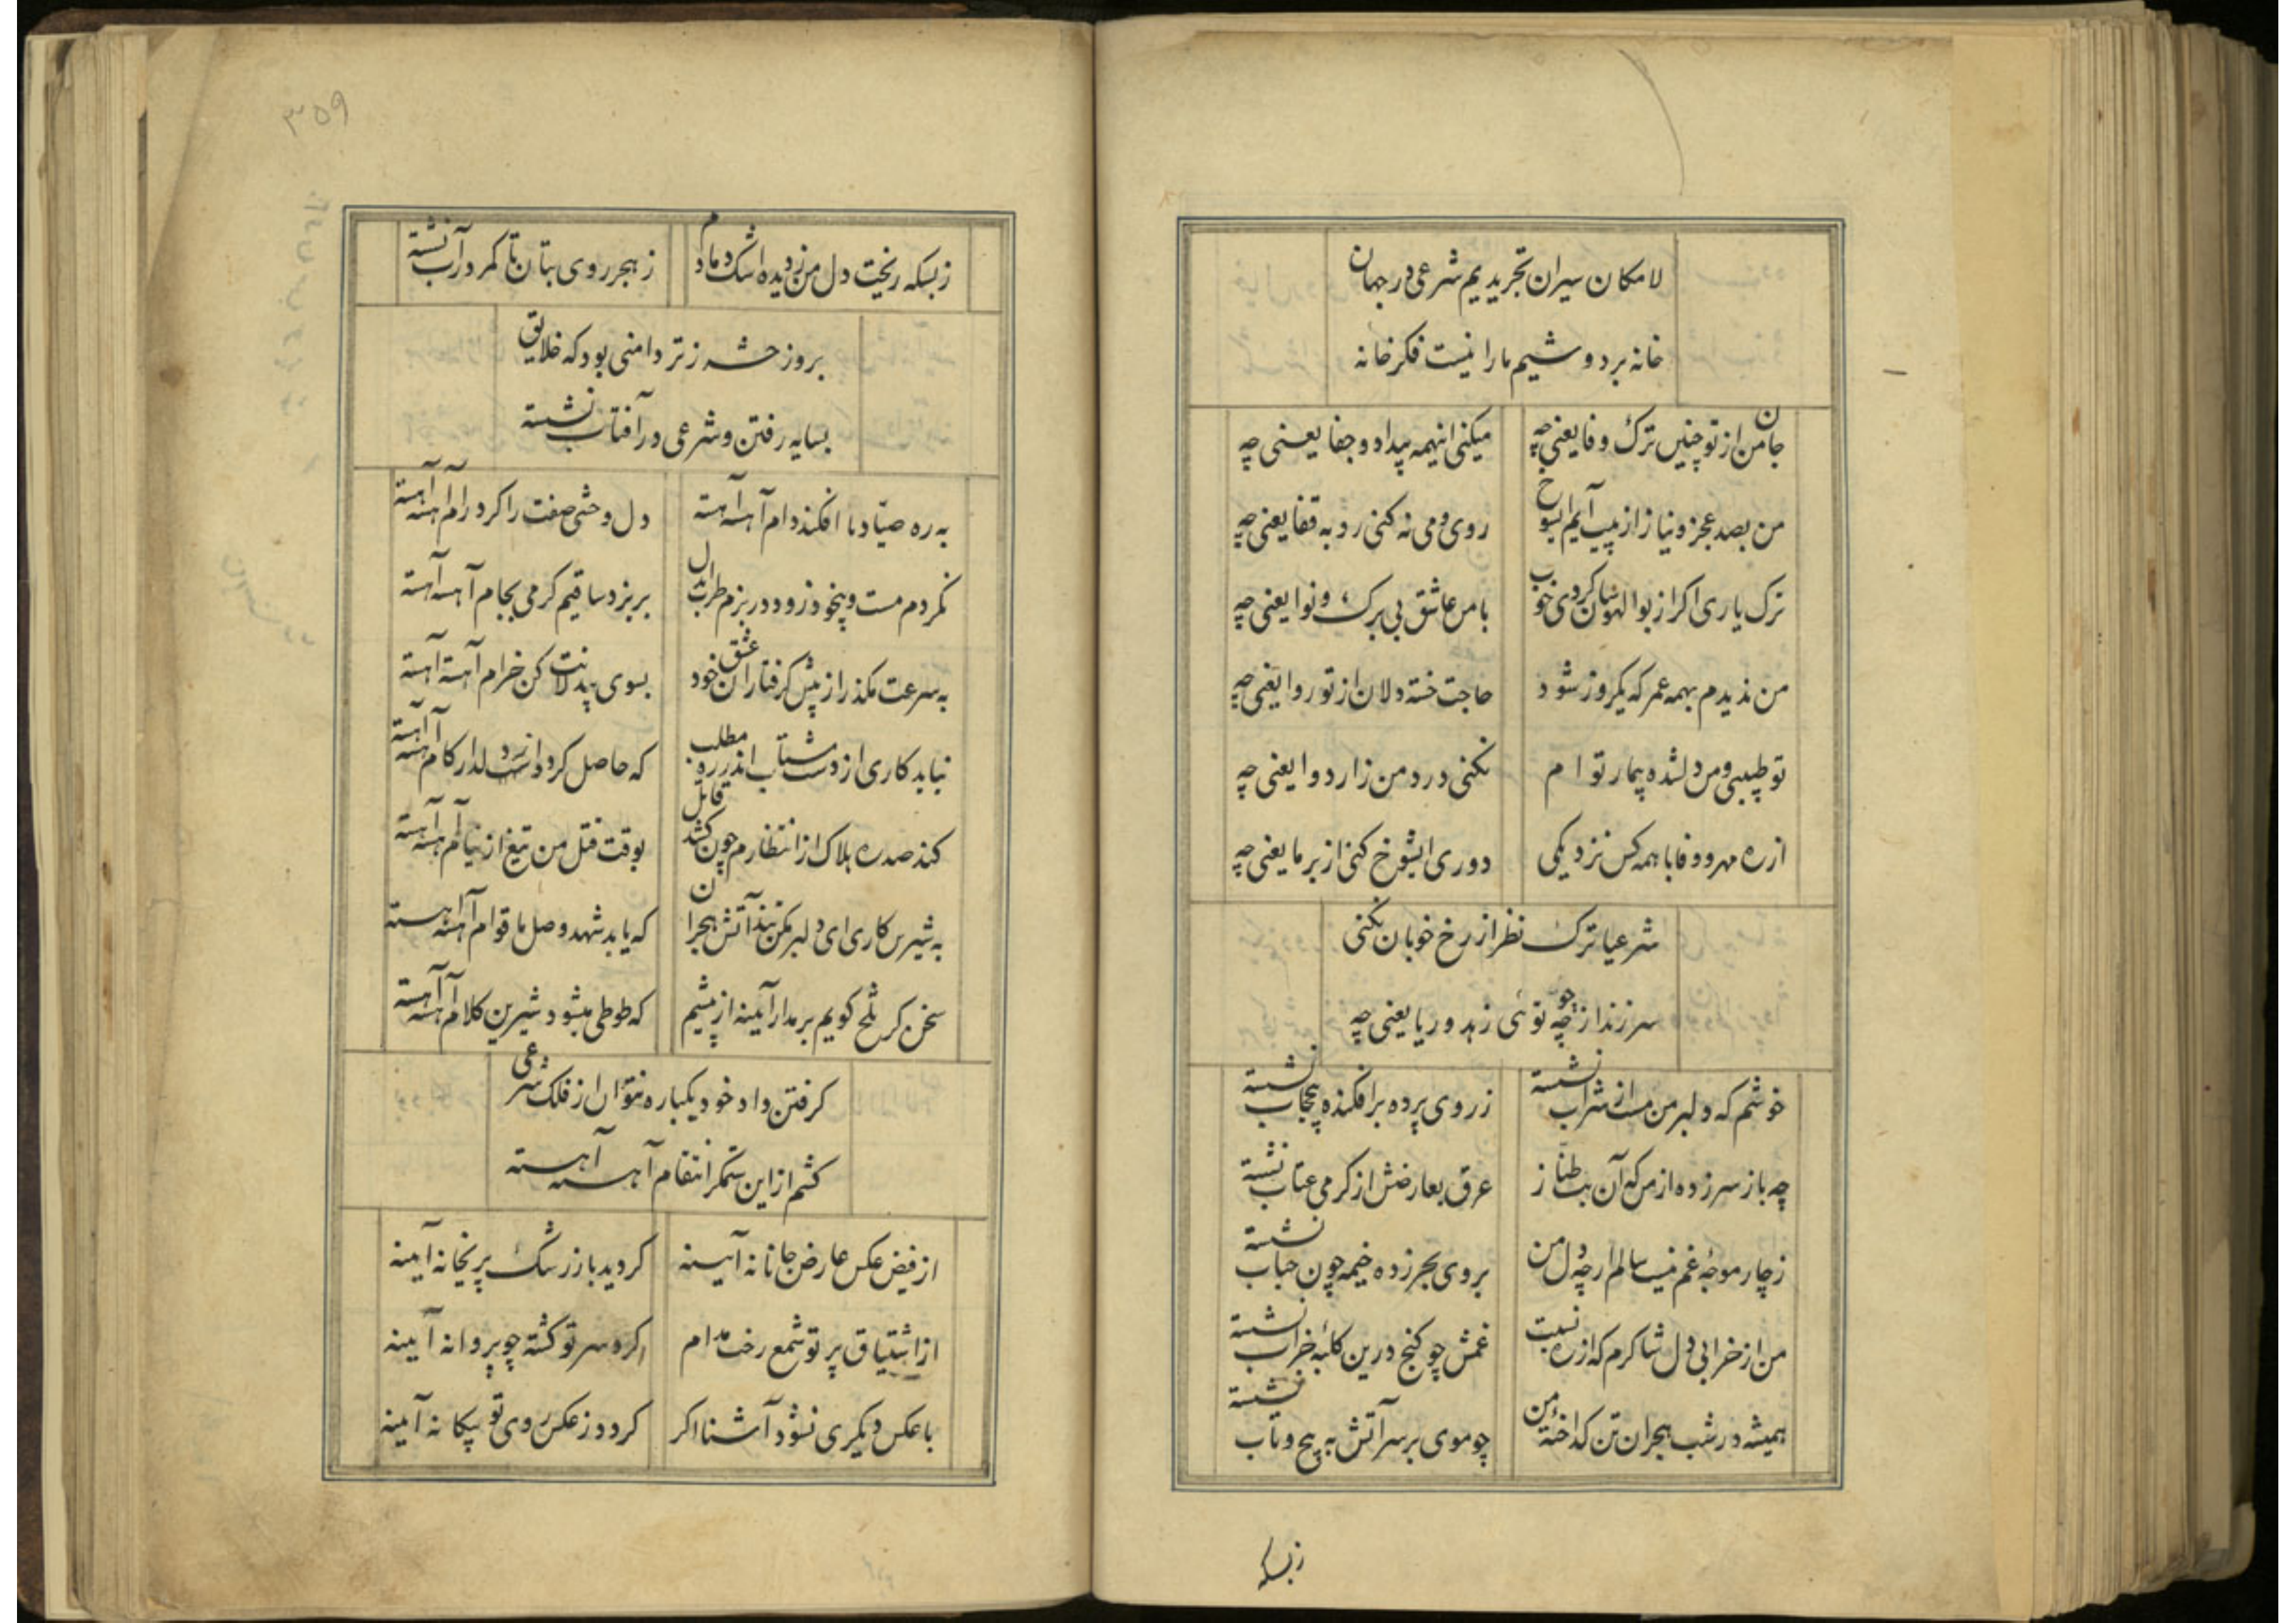 لامکان سیران تجریدیم شرعی در جهان
خانه بردوشیم ما را نیست فکر خانه
جان من از تو چنین ترک وفا یعنی چه میکنی اینهمه بیداد و جفا یعنی چه
من بصد عجز و نیاز از پیت آیم ایشوخ روی ومی نه کنی رو به قفا یعنی چه
ترک یاری اکر از بوالهوسان کردی خوب با من عاشق بی برک و نوا یعنی چه
من ندیدم بهمه عمر که یکروز شود حاجت خسته دلان از تو روا یعنی چه
تو طبیبی و من دلشده بیمار تو ام نکنی درد من زار دوا یعنی چه
از ره مهر و وفا با همه کس نزدیکی دوری ایشوخ کنی از بر ما یعنی چه
شرعیا ترک نظر از رخ خوبان نکنی
سر زند از چو توئی زهد و ریا یعنی چه
خوشم که دلبر من مست از شراب نشسته ز روی پرده برافکنده بیحجاب نشسته
چه باز سر زده از من که آن بت طناز عرق بعارضش از کرمی عتاب نشسته
ز چار موجهٔ غم نیست سالم ارچه دل من بروی بحر زده خیمه چون حباب نشسته
من از خرابی دل شاکرم که از ره نسبت غمش چو کنج درین کلبهٔ خراب نشسته
همیشه در شب هجران تن کداختهٔ من چو موی بر سر آتش به پیچ و تاب نشسته
زبسکه
۳۵۹
زبسکه ریخت دل من ز دیده اشک دمادم ز هجر روی بتان تا کمر در آب نشسته
بروز حشر ز تر دامنی بود که خلایق
بسایه رفتن و شرعی در آفتاب نشسته
به ره صیاد ما افکند دام آهسته آهسته دل وحشی صفت را کرد رام آهسته آهسته
نکردم مست و بیخود زود در بزم طرب ایدل بریزد ساقیم کر می بجام آهسته آهسته
به سرعت مکذر از پیش کرفتاران عشق خود بسوی بیدلانت کن خرام آهسته آهسته
نیاید کاری از دست شتاب اندر ره مطلب که حاصل کردد از دلدار کام آهسته آهسته
کند صد ره هلاک از انتظارم چون کشد قاتل بوقت قتل من تیغ از نیام آهسته آهسته
به شیرین کاری ای دلبر مکن تند آتش هجران که یابد شهد وصل ما قوام آهسته آهسته
سخن کر تلخ کویم بر مدار آیینه از پیشم که طوطی میشود شیرین کلام آهسته آهسته
کرفتن داد خود یکباره نتوان از فلک شرعی
کشم از این ستمکر انتقام آهسته آهسته
از فیض عکس عارض جانانه آیینه کردید باز رشک پریخانه آیینه
از اشتیاق پرتو شمع رخت مدام کرد سر تو کشته چو پروانه آیینه
با عکس دیکری نشود آشنا اکر کردد ز عکس روی تو بیکانه آیینه